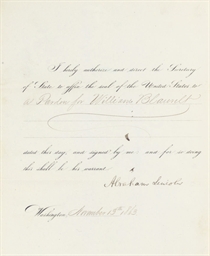 I hereby authorize and direct the Secretary
of State to affix the seal of the United States to
a Pardon for William Blount
dated this day, and signed by me: and for so doing
this shall be his warrant.
Abraham Lincoln
Washington,